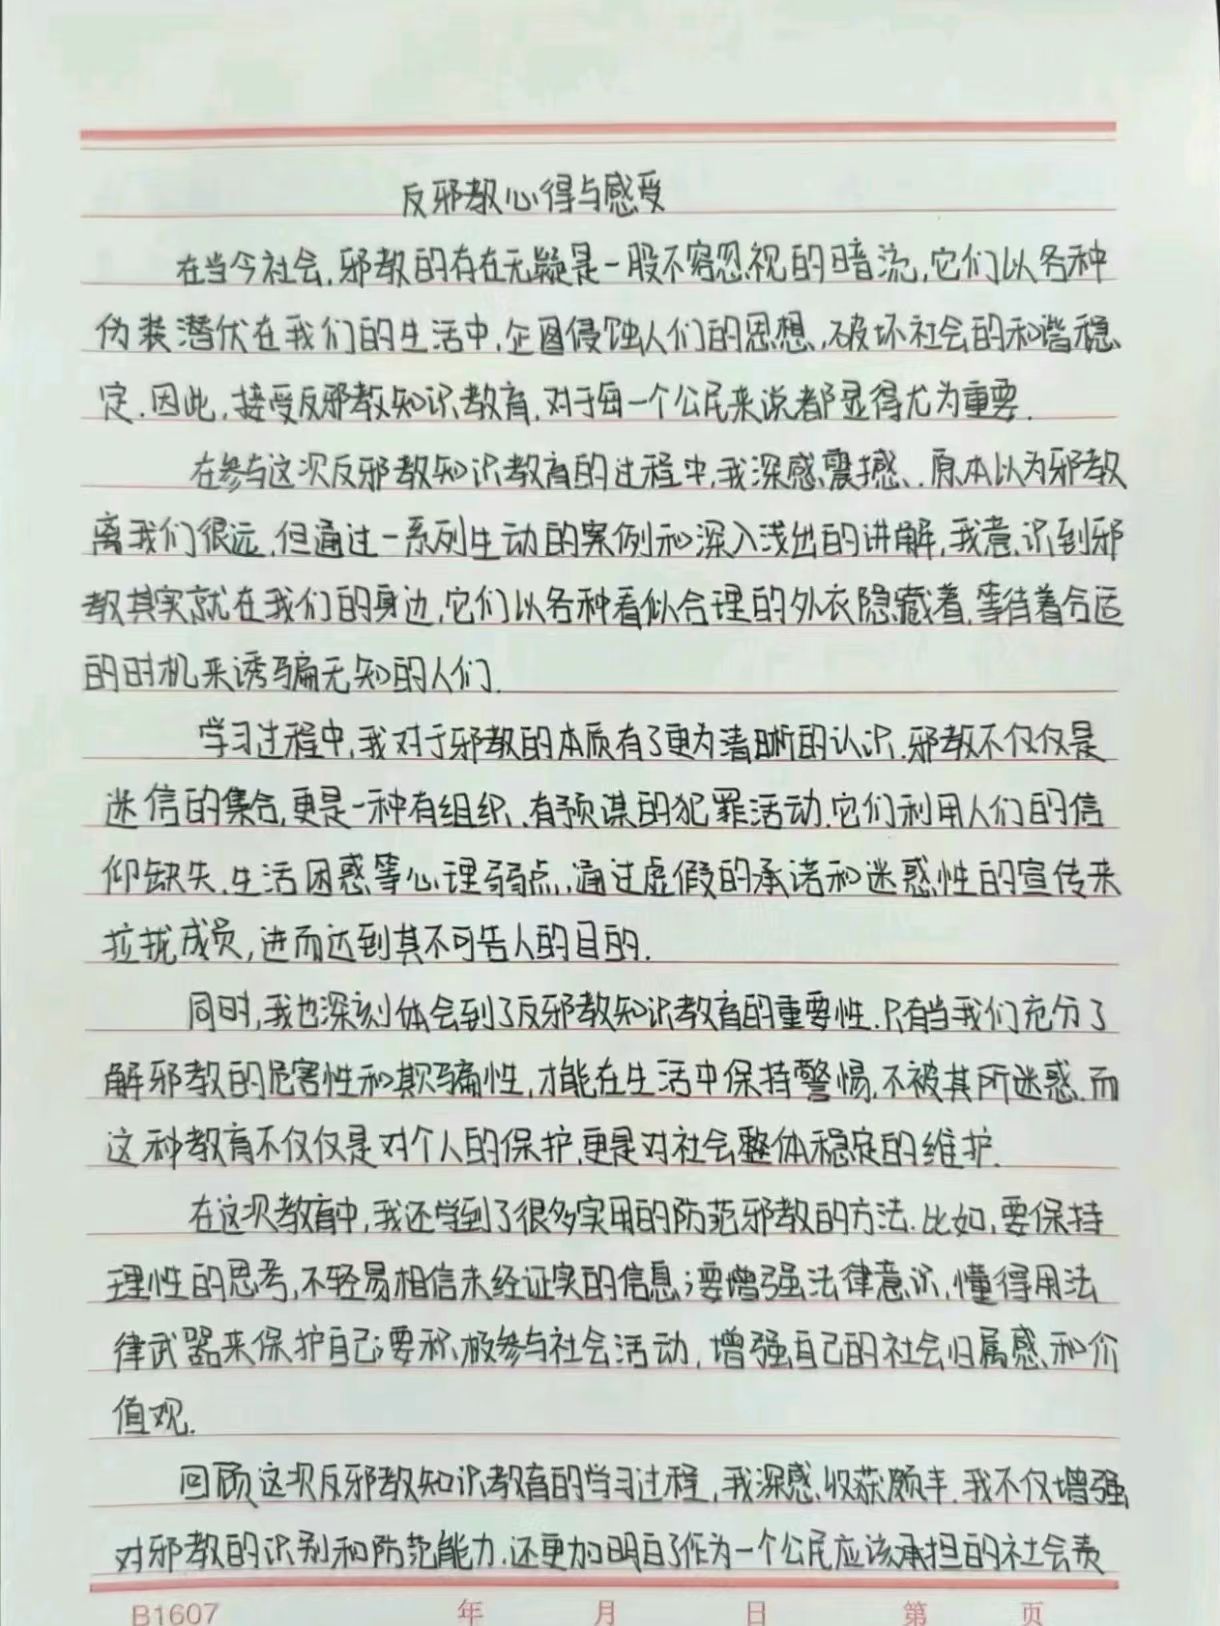 反邪教心得与感受
在当今社会,邪教的存在无疑是一股不容忽视的暗流,它们以各种
伪装潜伏在我们的生活中,企图侵蚀人们的思想,破坏社会的和谐稳
定.因此,接受反邪教知识教育,对于每一个公民来说都显得尤为重要.
在参与这次反邪教知识教育的过程中,我深感震撼.原本以为邪教
离我们很远,但通过一系列生动的案例和深入浅出的讲解,我意识到邪
教其实就在我们的身边,它们以各种看似合理的外衣隐藏着,等待着合适
的时机来诱骗无知的人们.
学习过程中,我对于邪教的本质有了更为清晰的认识.邪教不仅仅是
迷信的集合,更是一种有组织、有预谋的犯罪活动.它们利用人们的信
仰缺失、生活困惑等心理弱点,通过虚假的承诺和迷惑性的宣传来
拉拢成员,进而达到其不可告人的目的.
同时,我也深刻体会到了反邪教知识教育的重要性.只有当我们充分了
解邪教的危害性和欺骗性,才能在生活中保持警惕,不被其所迷惑.而
这种教育不仅仅是对个人的保护,更是对社会整体稳定的维护.
在这次教育中,我还学到了很多实用的防范邪教的方法.比如,要保持
理性的思考,不轻易相信未经证实的信息;要增强法律意识,懂得用法
律武器来保护自己;要积极参与社会活动,增强自己的社会归属感和价
值观.
回顾这次反邪教知识教育的学习过程,我深感收获颇丰.我不仅增强
对邪教的识别和防范能力,还更加明白了作为一个公民应该承担的社会责
B1607 年 月 日 第 页